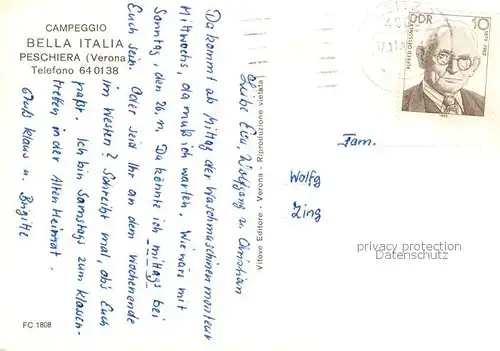 CAMPEGGIO
BELLA ITALIA
PESCHIERA (Verona)
Telefono 640138
Liebe Eva, Wolfgang u. Christian
Da kommt ab Mittag der Waschmaschinenmonteur
Mittwochs, da muß ich warten. Wie wärs mit
Sonntag, den 26.11. Da könnte ich mittags bei
Euch sein. Oder seid Ihr an dem Wochenende
im Westen? Schreibt mal, ob's Euch
paßt. Ich bin Samstags zum Klassen-
treffen in der Alten Heimat.
Gruß Klaus u. Brigitte
FC 1808
Vitove Editore - Verona - Riproduzione vietata
DDR
10
ALFRED OELSSNER
1879-1962
Fam.
Wolfg
Zing
privacy protection
Datenschutz